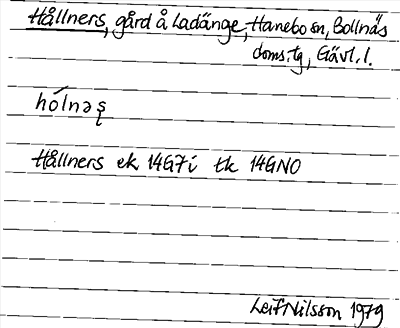 Hållners, gård å Ladänge, Hanebo sn, Bollnäs
doms.tg, Gävl.l.
hólnəʂ
Hållners ek 14G7i tk 14GNO
Leif Nilsson 1979